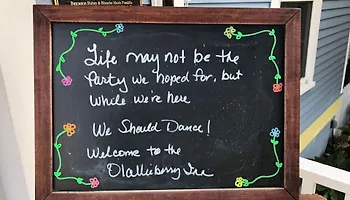 Life may not be the
Party we hoped for, but
while we're here
We Should Dance!
Welcome to the
Olallieberry Inn